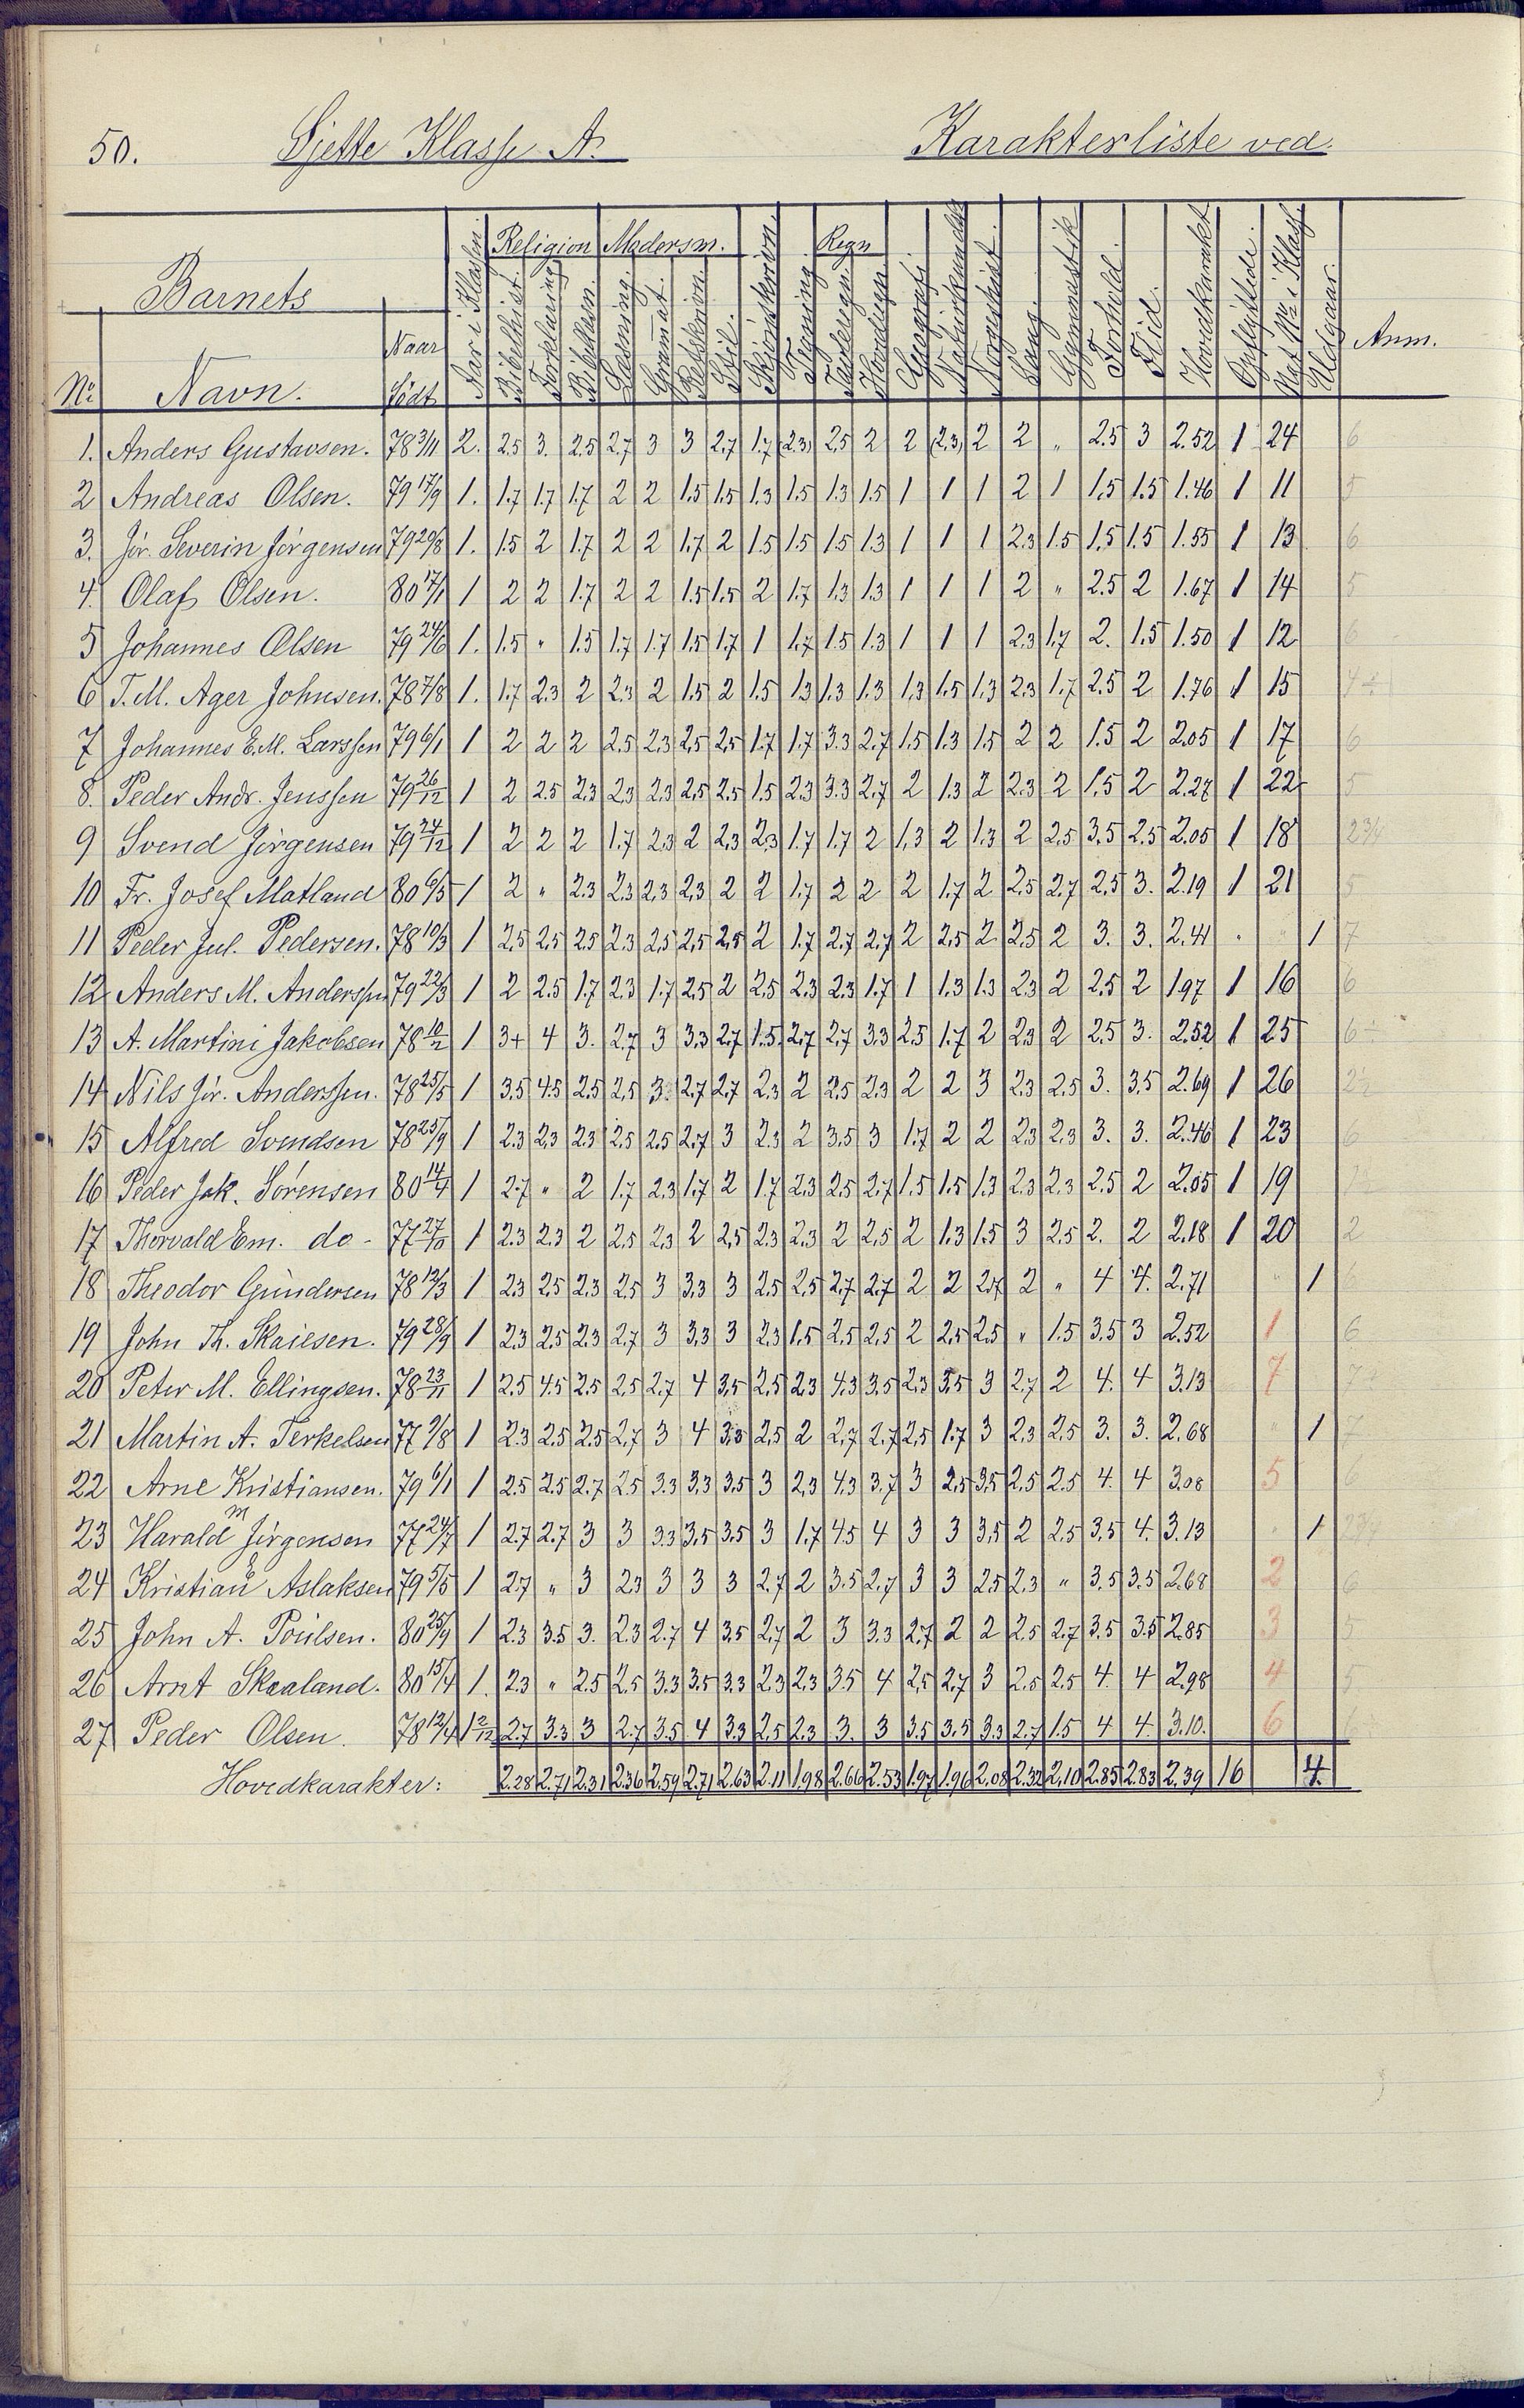 50. Sjette Klasse A. Karakterliste ved.
Religion Modersm. Regn
Barnets
No. Navn. Naar Født Aar i Klassen Bibelhist. Forklaring Bibellæsn. Læsning Grammat. Retskrivn. Stil. Skjönskrivn. Tegning Tavleregn. Hovedregn Geografi Naturkundsk. Norgeshist. Sang. Gymnastik Forhold. Flid. Hovedkarakt. Opflyttede. Næst No. i Klass Udgaar. Anm.
1. Anders Gustavsen. 78 3/11 2. 2.5 3. 2.5 2.7 3 3 2.7 1.7 (2.3) 2.5 2 2 (2.3) 2 2 „ 2.5 3 2.52 1 24 6
2 Andreas Olsen. 79 17/9 1. 1.7 1.7 1.7 2 2 1.5 1.5 1.3 1.5 1.3 1.5 1 1 1 2 1 1.5 1.5 1.46 1 11 5
3. Jör. Severin Jörgensen 79 20/8 1. 1.5 2 1.7 2 2 1.7 2 1.5 1.5 1.5 1.3 1 1 1 2.3 1.5 1.5 1.5 1.55 1 13 6
4. Olaf Olsen. 80 17/1 1 2 2 1.7 2 2 1.5 1.5 2 1.7 1.3 1.3 1 1 1 2 „ 2.5 2 1.67 1 14 5
5 Johannes Olsen 79 24/6 1. 1.5 „ 1.5 1.7 1.7 1.5 1.7 1 1.7 1.5 1.3 1 1 1 2.3 1.7 2. 1.5 1.50 1 12 6
6 T. M. Ager Johnsen. 78 7/8 1. 1.7 2.3 2 2.3 2 1.5 2 1.5 1.3 1.3 1.3 1.3 1.5 1.3 2.3 1.7 2.5 2 1.76 1 15
7 Johannes E. M. Larssen 79 6/1 1 2 2 2 2.5 2.3 2.5 2.5 1.7 1.7 3.3 2.7 1.5 1.3 1.5 2 2 1.5 2 2.05 1 17 6
8. Peder Andr. Jenssen 79 26/12 1 2 2.5 2.3 2.3 2.3 2.5 2.5 1.5 2.3 3.3 2.7 2 1.3 2 2.3 2 1.5 2 2.27 1 22 5
9 Svend Jörgensen 79 24/12 1 2 2 2 1.7 2.3 2 2.3 2.3 1.7 1.7 2 1.3 2 1.3 2 2.5 3.5 2.5 2.05 1 18 2 3/4
10 Fr. Josef Matland 80 6/5 1 2 „ 2.3 2.3 2.3 2.3 2 2 1.7 2 2 2 1.7 2 2.5 2.7 2.5 3. 2.19 1 21 5
11 Peder Jul. Pedersen. 78 10/3 1 2.5 2.5 2.5 2.3 2.5 2.5 2.5 2 1.7 2.7 2.7 2 2.5 2 2.5 2 3. 3. 2.41 „ „ 1 7
12 Anders M. Anderssen 79 22/3 1 2 2.5 1.7 2.3 1.7 2.5 2 2.5 2.3 2.3 1.7 1 1.3 1.3 2.3 2 2.5 2 1.97 1 16 6
13 A. Martini Jakobsen 78 10/2 1 3+ 4 3. 2.7 3 3.3 2.7 1.5 2.7 2.7 3.3 2.5 1.7 2 2.3 2 2.5 3. 2.52 1 25 6
14 Nils Jör. Anderssen. 78 25/5 1 3.5 4.5 2.5 2.5 3. 2.7 2.7 2.3 2 2.5 2.3 2 2 3 2.3 2.5 3. 3.5 2.69 1 26 2 1/2
15 Alfred Svendsen 78 25/9 1 2.3 2.3 2.3 2.5 2.5 2.7 3 2.3 2 3.5 3 1.7 2 2 2.3 2.3 3. 3. 2.46 1 23 6
16 Peder Jak. Sörensen 80 14/4 1 2.7 „ 2 1.7 2.3 1.7 2 1.7 2.3 2.5 2.7 1.5 1.5 1.3 2.3 2.3 2.5 2 2.05 1 19
17 Thorvald Em. do - 77 27/10 1 2.3 2.3 2 2.5 2.3 2 2.5 2.3 2.3 2 2.5 2 1.3 1.5 3 2.5 2. 2 2.18 1 20 2
18 Theodor Gundersen 78 12/3 1 2.3 2.5 2.3 2.5 3 3.3 3 2.5 2.5 2.7 2.7 2 2 2.7 2 „ 4 4. 2.71 „ 1 6
19 John Th. Skaiesen. 79 28/9 1 2.3 2.5 2.3 2.7 3 3.3 3 2.3 1.5 2.5 2.5 2 2.5 2.5 „ 1.5 3.5 3 2.52 1 6
20 Peter M. Ellingsen. 78 23/11 1 2.5 4.5 2.5 2.5 2.7 4 3.5 2.5 2.3 4.3 3.5 2.3 3.5 3 2.7 2 4. 4 3.13 7 7
21 Martin A. Terkelsen 77 9/8 1 2.3 2.5 2.5 2.7 3 4 3.3 2.5 2 2.7 2.7 2.5 1.7 3 2.3 2.5 3. 3. 2.68 „ 1 7
22 Arne Kristiansen. 79 6/1 1 2.5 2.5 2.7 2.5 3.3 3.3 3.5 3 2.3 4.3 3.7 3 2.5 3.5 2.5 2.5 4. 4 3.08 5 6
23 Harald M Jörgensen 77 24/7 1 2.7 2.7 3 3 3.3 3.5 3.5 3 1.7 4.5 4 3 3 3.5 2 2.5 3.5 4. 3.13 „ 1
24 Kristian Aslaksen 79 5/5 1 2.7 „ 3 2.3 3 3 3 2.7 2 3.5 2.7 3 3 2.5 2.3 „ 3.5 3.5 2.68 2 6
25 John A. Poulsen. 80 25/9 1 2.3 3.5 3. 2.3 2.7 4 3.5 2.7 2 3 3.3 2.7 2 2 2.5 2.7 3.5 3.5 2.85 3 5
26 Arnt Skaaland. 80 15/4 1. 2.3 „ 2.5 2.5 3.3 3.5 3.3 2.3 2.3 3.5 4 2.5 2.7 3 2.5 2.5 4. 4 2.98 4 5
27 Peder Olsen. 78 12/4 1 2/12 2.7 3.3 3 2.7 3.5 4 3.3 2.5 2.3 3. 3 3.5 3.5 3.3 2.7 1.5 4 4. 3.10. 6 6
Hovedkarakter: 2.28 2.71 2.31 2.36 2.59 2.71 2.63 2.11 1.98 2.66 2.53 1.97 1.96 2.08 2.32 2.10 2.85 2.83 2.39 16 4.